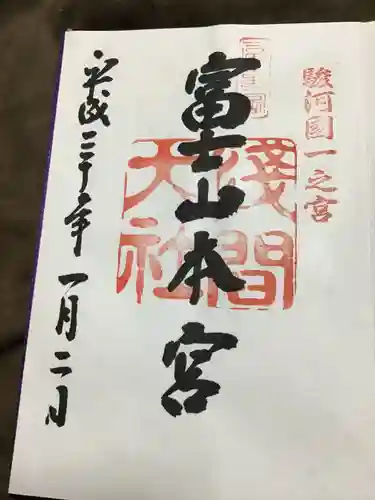 駿河国一之宮
富士山本宮
淺間大社
平成三十年一月二日